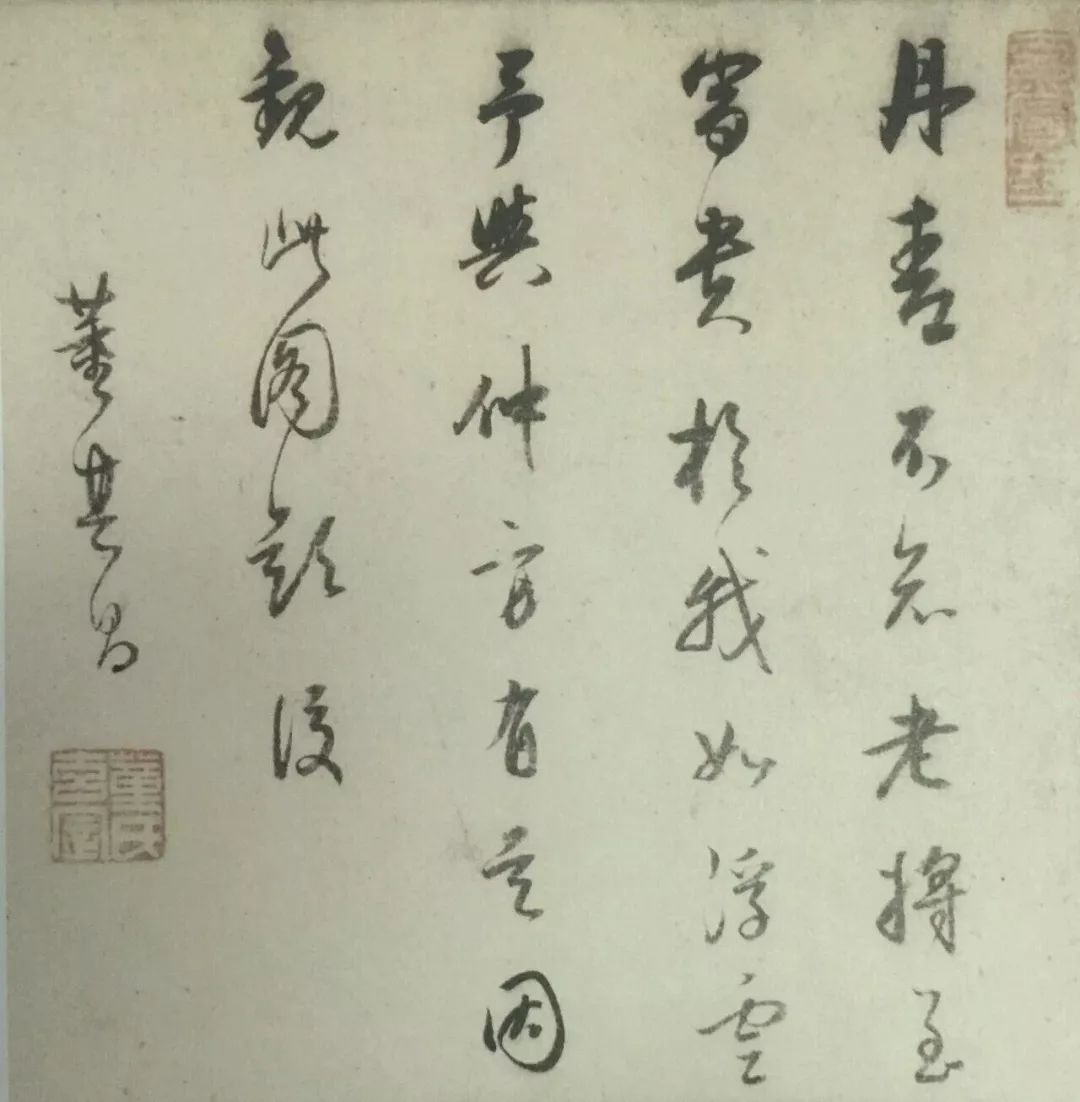 玄賞齋
丹青不知老將至
富貴於我如浮雲
予與仲方有之因
觀此圖題後
董其昌